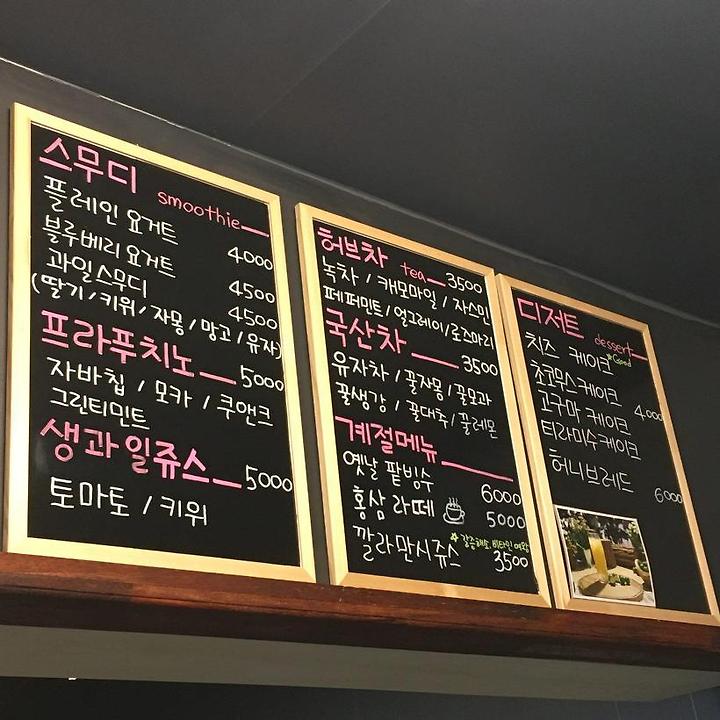 스무디 smoothie
플레인 요거트 4000
블루베리 요거트 4500
과일스무디 4500
(딸기/키위/자몽/망고/유자)
프라푸치노 5000
자바칩 / 모카 / 쿠앤크
그린티민트
생과일쥬스 5000
토마토 / 키위
허브차 tea 3500
녹차 / 캐모마일 / 자스민
페퍼민트/얼그레이/로즈마리
국산차 3500
유자차 / 꿀자몽/꿀모과
꿀생강 / 꿀대추/꿀레몬
계절메뉴
옛날 팥빙수 6000
홍삼 라떼 5000
갈증해소 비타민 여왕
깔라만시쥬스 3500
디저트 dessert
치즈 케이크 Good
초코무스케이크
고구마 케이크 4,000
티라미수케이크
허니브레드 6000